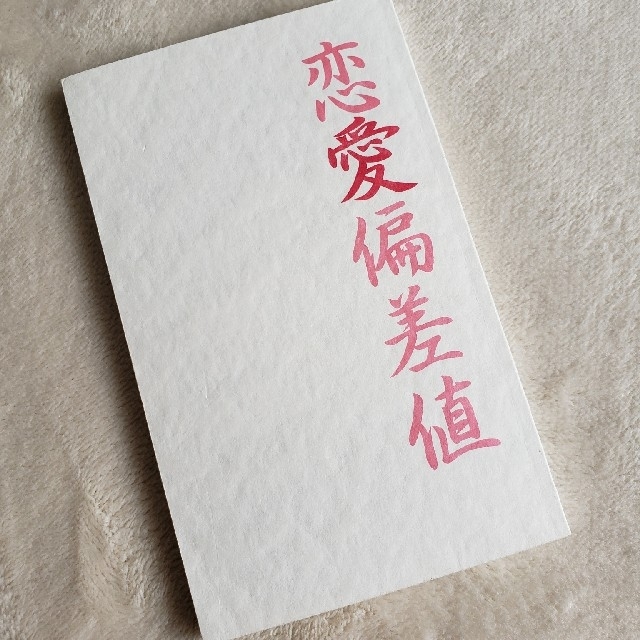 恋愛偏差値